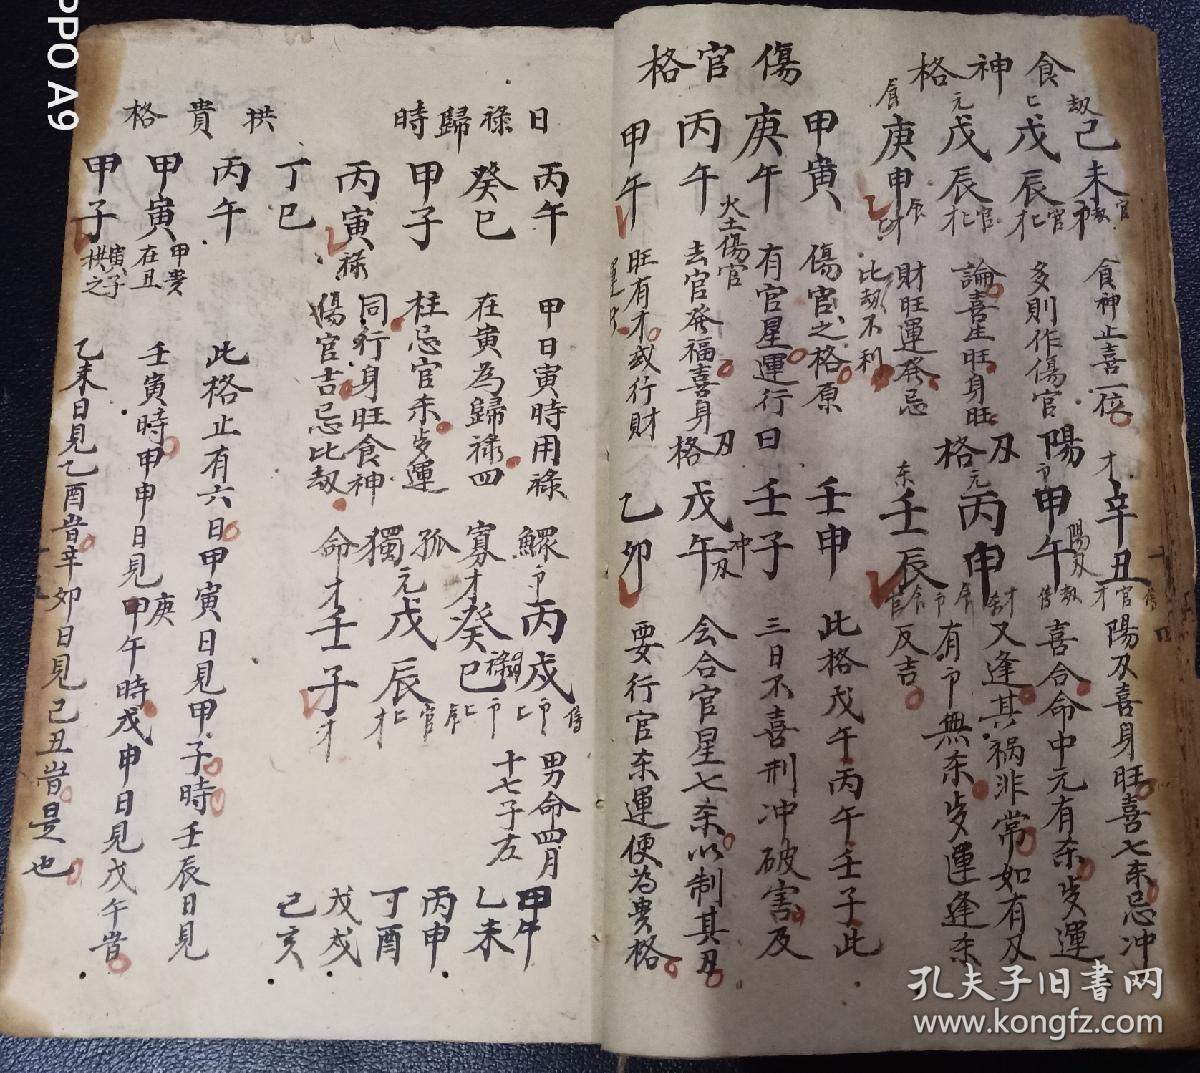 食神格
劫己未
戊辰
元戊辰
食庚申
食神止喜一位
多則作傷官
論喜生旺身旺
財旺運發忌
比劫不利
傷官格
甲寅
庚午
丙午
甲午
傷官之格原
有官星運行
火土傷官
去官發福喜身
旺有才或行財
陽刃格
才辛丑
甲午
元丙申
壬辰
陽刃喜身旺喜七杀忌冲
喜合命中元有杀歲運
又逢其禍非常如有刃
有卩無杀歲運逢杀
反吉
日刃格
壬申
壬子
戊午
乙卯
此格戊午丙午壬子此
三日不喜刑冲破害及
会合官星七杀以制其刃
要行官杀運便為貴格
日祿歸時
丙午
癸巳
甲子
丙寅祿
甲日寅時用祿
在寅為歸祿四
柱忌官杀歲運
同行身旺食神
傷官吉忌比劫
鰥寡孤獨命
丙戌
癸巳
元戊辰
才壬子才
男命四月
十七子左
甲午
乙未
丙申
丁酉
戊戌
己亥
拱貴格
丁巳
丙午
甲寅
甲子
甲貴
在丑
寅子
拱之
此格止有六日甲寅日見甲子時壬辰日見
壬寅時甲申日見甲午時戊申日見戊午時
乙未日見乙酉時辛卯日見己丑時是也
孔夫子旧书网
www.kongfz.com
PPO A9